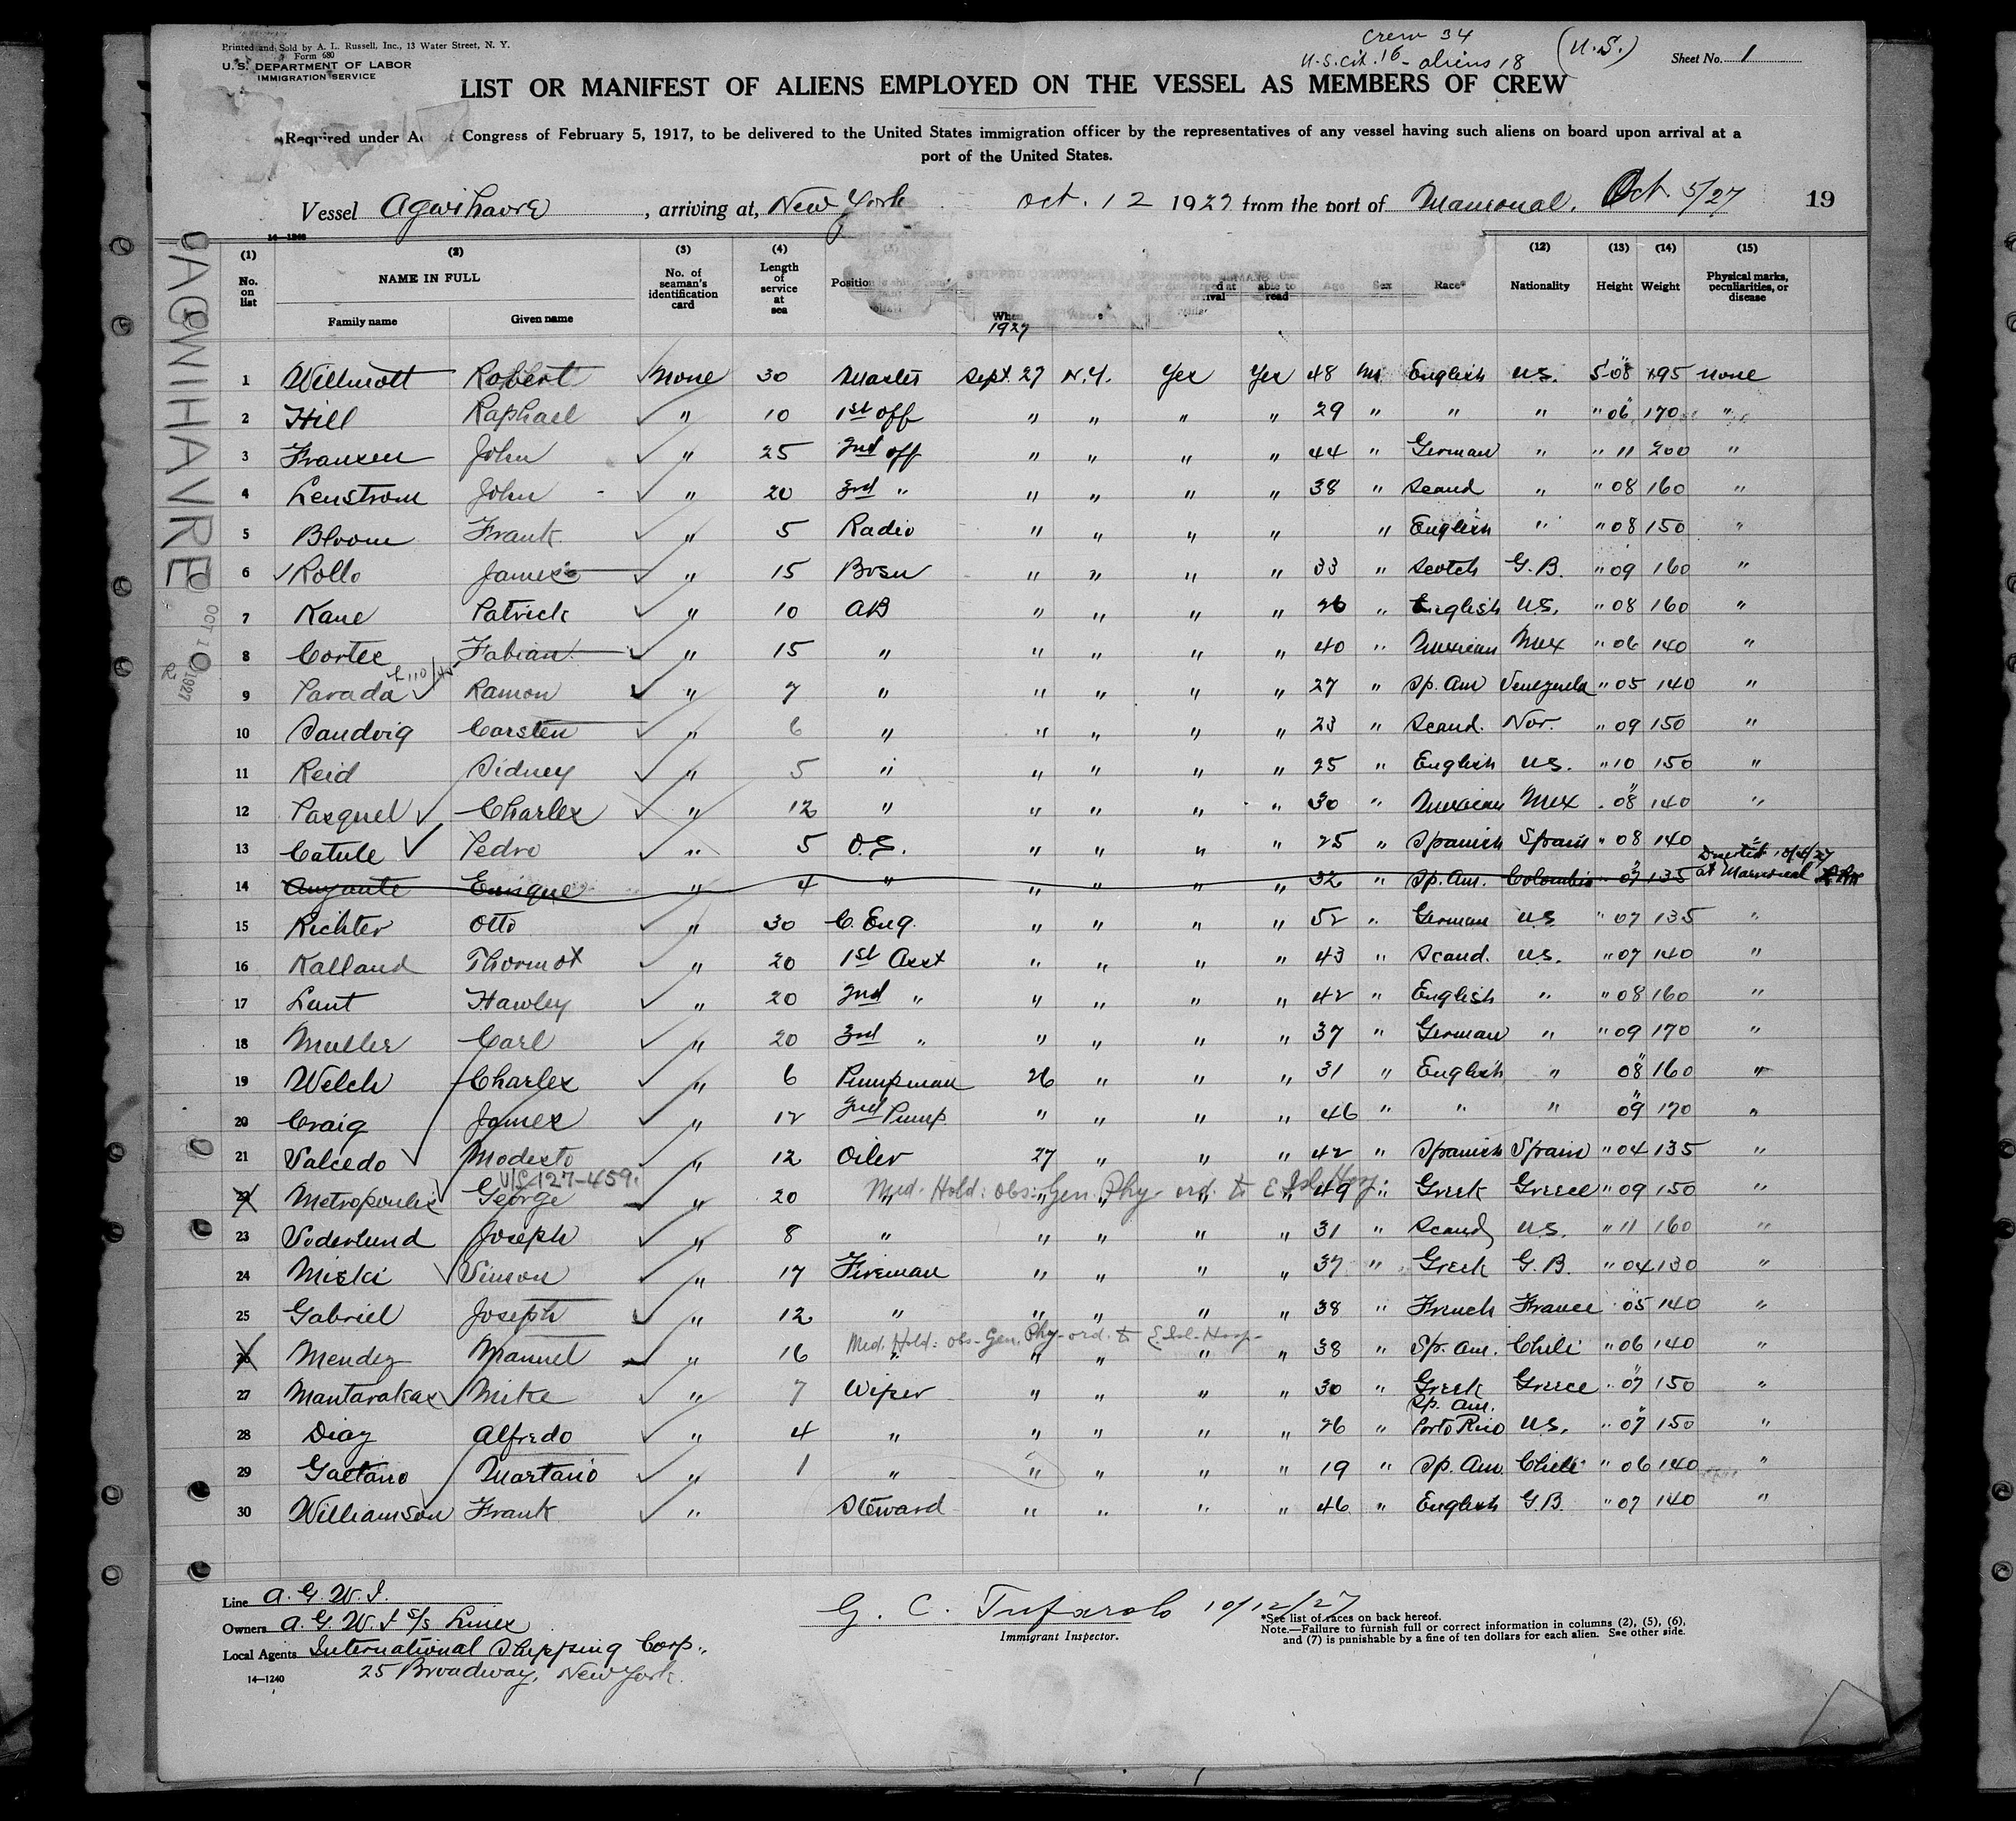 Printed and Sold by A. L. Russell, Inc., 13 Water Street, N. Y.
Form 680
U. S. DEPARTMENT OF LABOR
IMMIGRATION SERVICE
Crew 34
U.S. cit. 16 - aliens 18
(U.S.)
Sheet No. 1
LIST OR MANIFEST OF ALIENS EMPLOYED ON THE VESSEL AS MEMBERS OF CREW
Required under Act of Congress of February 5, 1917, to be delivered to the United States immigration officer by the representatives of any vessel having such aliens on board upon arrival at a
port of the United States.
Vessel Agwihavre, arriving at, New York Oct. 12 1927 from the port of Mamonal, Oct 5/27 19
AGWIHAVRE
OCT 1 1927
14-1240
(1) No. on list
(2) NAME IN FULL
Family name Given name
(3) No. of seaman's identification card
(4) Length of service at sea
Position
When 1927
able to read
Age
Sex
Race*
(12) Nationality
(13) Height
(14) Weight
(15) Physical marks, peculiarities, or disease
1 Willmott Robert None 30 Master Sept. 27 N.Y. Yes Yes 48 M English U.S. 5-08 195 None
2 Hill Raphael " 10 1st Off " " " " 29 " " " " 06 170 "
3 Franzen John " 25 2nd Off " " " " 44 " German " " 11 200 "
4 Lenstrom John " 20 3rd " " " " " 38 " Scand " " 08 160 "
5 Bloom Frank " 5 Radio " " " " " English " " 08 150 "
6 Rollo James " 15 Bosn " " " " 33 " Scotch G.B. " 09 160 "
7 Kane Patrick " 10 AB " " " " 26 " English U.S. " 08 160 "
8 Cortez Fabian " 15 " " " " " 40 " Mexican Mex " 06 140 "
9 Parada Ramon " 7 " " " " " 27 " Sp. Am Venezuela " 05 140 "
10 Sandvig Carsten " 6 " " " " " 23 " Scand. Nor. " 09 150 "
11 Reid Sidney " 5 " " " " " 25 " English U.S. " 10 150 "
12 Pasquel Charles " 12 " " " " " 30 " Mexican Mex " 08 140 "
13 Catule Pedro " 5 O.S. " " " " 25 " Spanish Spain " 08 140 "
14 Enrique " 4 " " " " " 32 " Sp. Am. Colombia " 07 135 at Mamonal
15 Richter Otto " 30 C. Eng. " " " " 52 " German U.S " 07 135 "
16 Kalland " 20 1st Asst " " " " 43 " Scand. U.S. " 07 140 "
17 Lunt Hawley " 20 2nd " " " " " 42 " English " " 08 160 "
18 Muller Carl " 20 3rd " " " " " 37 " German " " 09 170 "
19 Welch Charles " 6 Pumpman 26 " " " 31 " English " 08 160 "
20 Craig James " 12 2nd Pump " " " " 46 " " " 09 170 "
21 Salcedo Modesto " 12 Oiler 27 " " " 42 " Spanish Spain " 04 135 "
127-459.
Med. Hold: obs: Gen. Phy- ord. to E. Isl. Hosp.
22 Metropoulis George " 20 " " " " " 49 " Greek Greece " 09 150 "
23 Soderlund Joseph " 8 " " " " " 31 " Scand U.S. " 11 160 "
24 Miski Simon " 17 Fireman " " " " 37 " Greek G.B. " 04 130 "
25 Gabriel Joseph " 12 " " " " " 38 " French France " 05 140 "
Med. Hold: obs- Gen. Phy- ord. to E. Isl- Hosp-
26 Mendez Manuel " 16 " " " " " 38 " Sp. Am. Chili " 06 140 "
27 Mantarakas Mike " 7 Wiper " " " " 30 " Greek Greece " 07 150 "
28 Diaz Alfredo " 4 " " " " " 26 " Sp. Am. Porto Rico U.S. " 07 150 "
29 Gaetano Martano " 1 " " " " " 19 " Sp. Am. Chili " 06 140 "
30 Williamson Frank " Steward " " " " 46 " English G.B. " 07 140 "
Line A. G. W. I.
Owners A. G. W. I S/S Lines
Local Agents International Shipping Corp.,
25 Broadway, New York.
14—1240
10/12/27
Immigrant Inspector.
*See list of races on back hereof.
Note.—Failure to furnish full or correct information in columns (2), (5), (6),
and (7) is punishable by a fine of ten dollars for each alien. See other side.